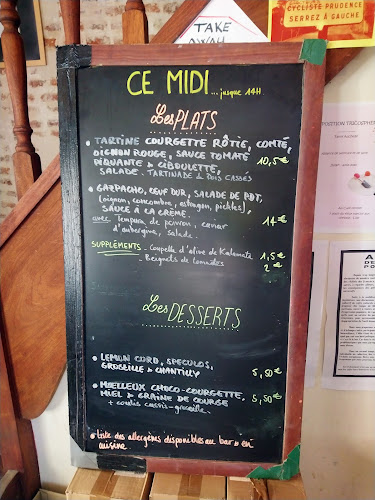 TAKE
AWAY
CYCLISTE PRUDENCE
SERREZ À GAUCHE
CE MIDI ... jusque 14H
Les PLATS
• TARTINE COURGETTE RÔTIE, COMTÉ,
OIGNON ROUGE, SAUCE TOMATE
PIQUANTE & CIBOULETTE, 10,5€
SALADE. TARTINADE & POIS CASSÉS
• GASPACHO, ŒUF DUR, SALADE DE PDT,
(oignon, concombre, estragon, pickles),
SAUCE À LA CRÈME. 14€
avec Tempura de poivron, caviar
d'aubergine, salade.
SUPPLÉMENTS - Coupelle d'olive de Kalamata 1,5€
- Beignets de tomates 2€
Les DESSERTS
• LEMON CURD, SPECULOS,
GROSEILLE & CHANTILLY 5,50€
• MOELLEUX CHOCO-COURGETTE,
MIEL & GRAINE DE COURGE 5,50€
+ coulis cassis-groseille.
• Liste des allergènes disponibles au bar & en
cuisine